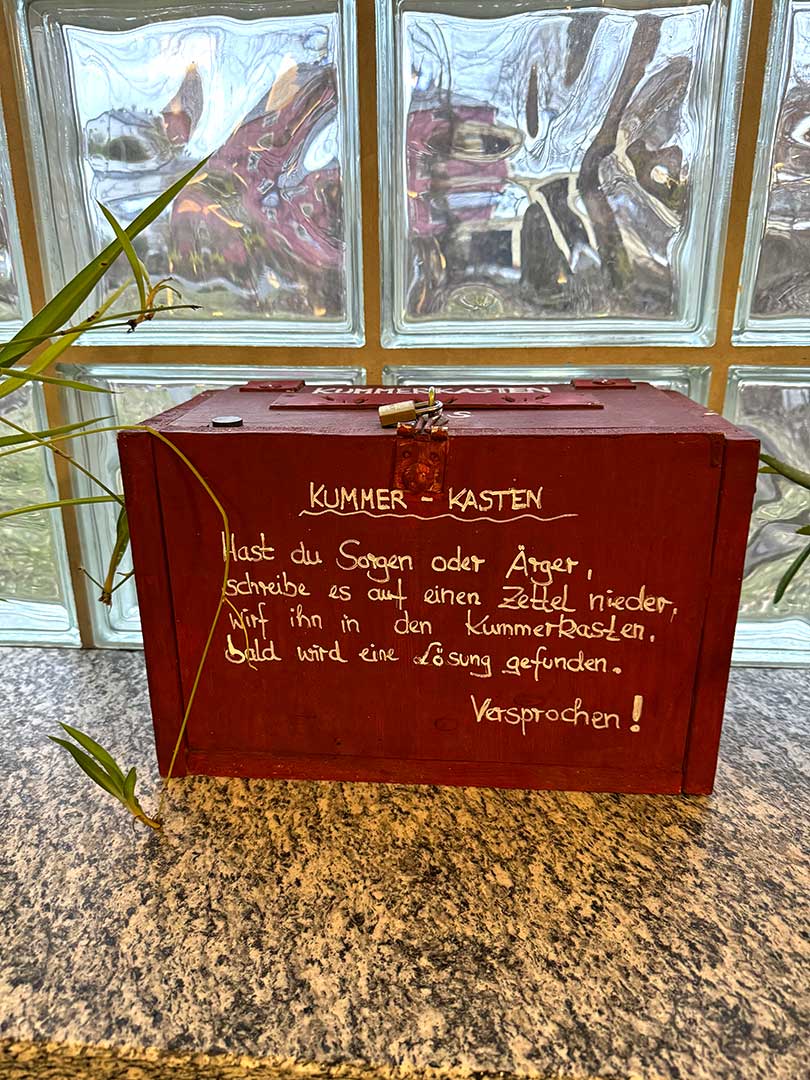 KUMMERKASTEN
KUMMER - KASTEN
Hast du Sorgen oder Ärger,
schreibe es auf einen Zettel nieder,
wirf ihn in den Kummerkasten.
bald wird eine Lösung gefunden.
Versprochen!